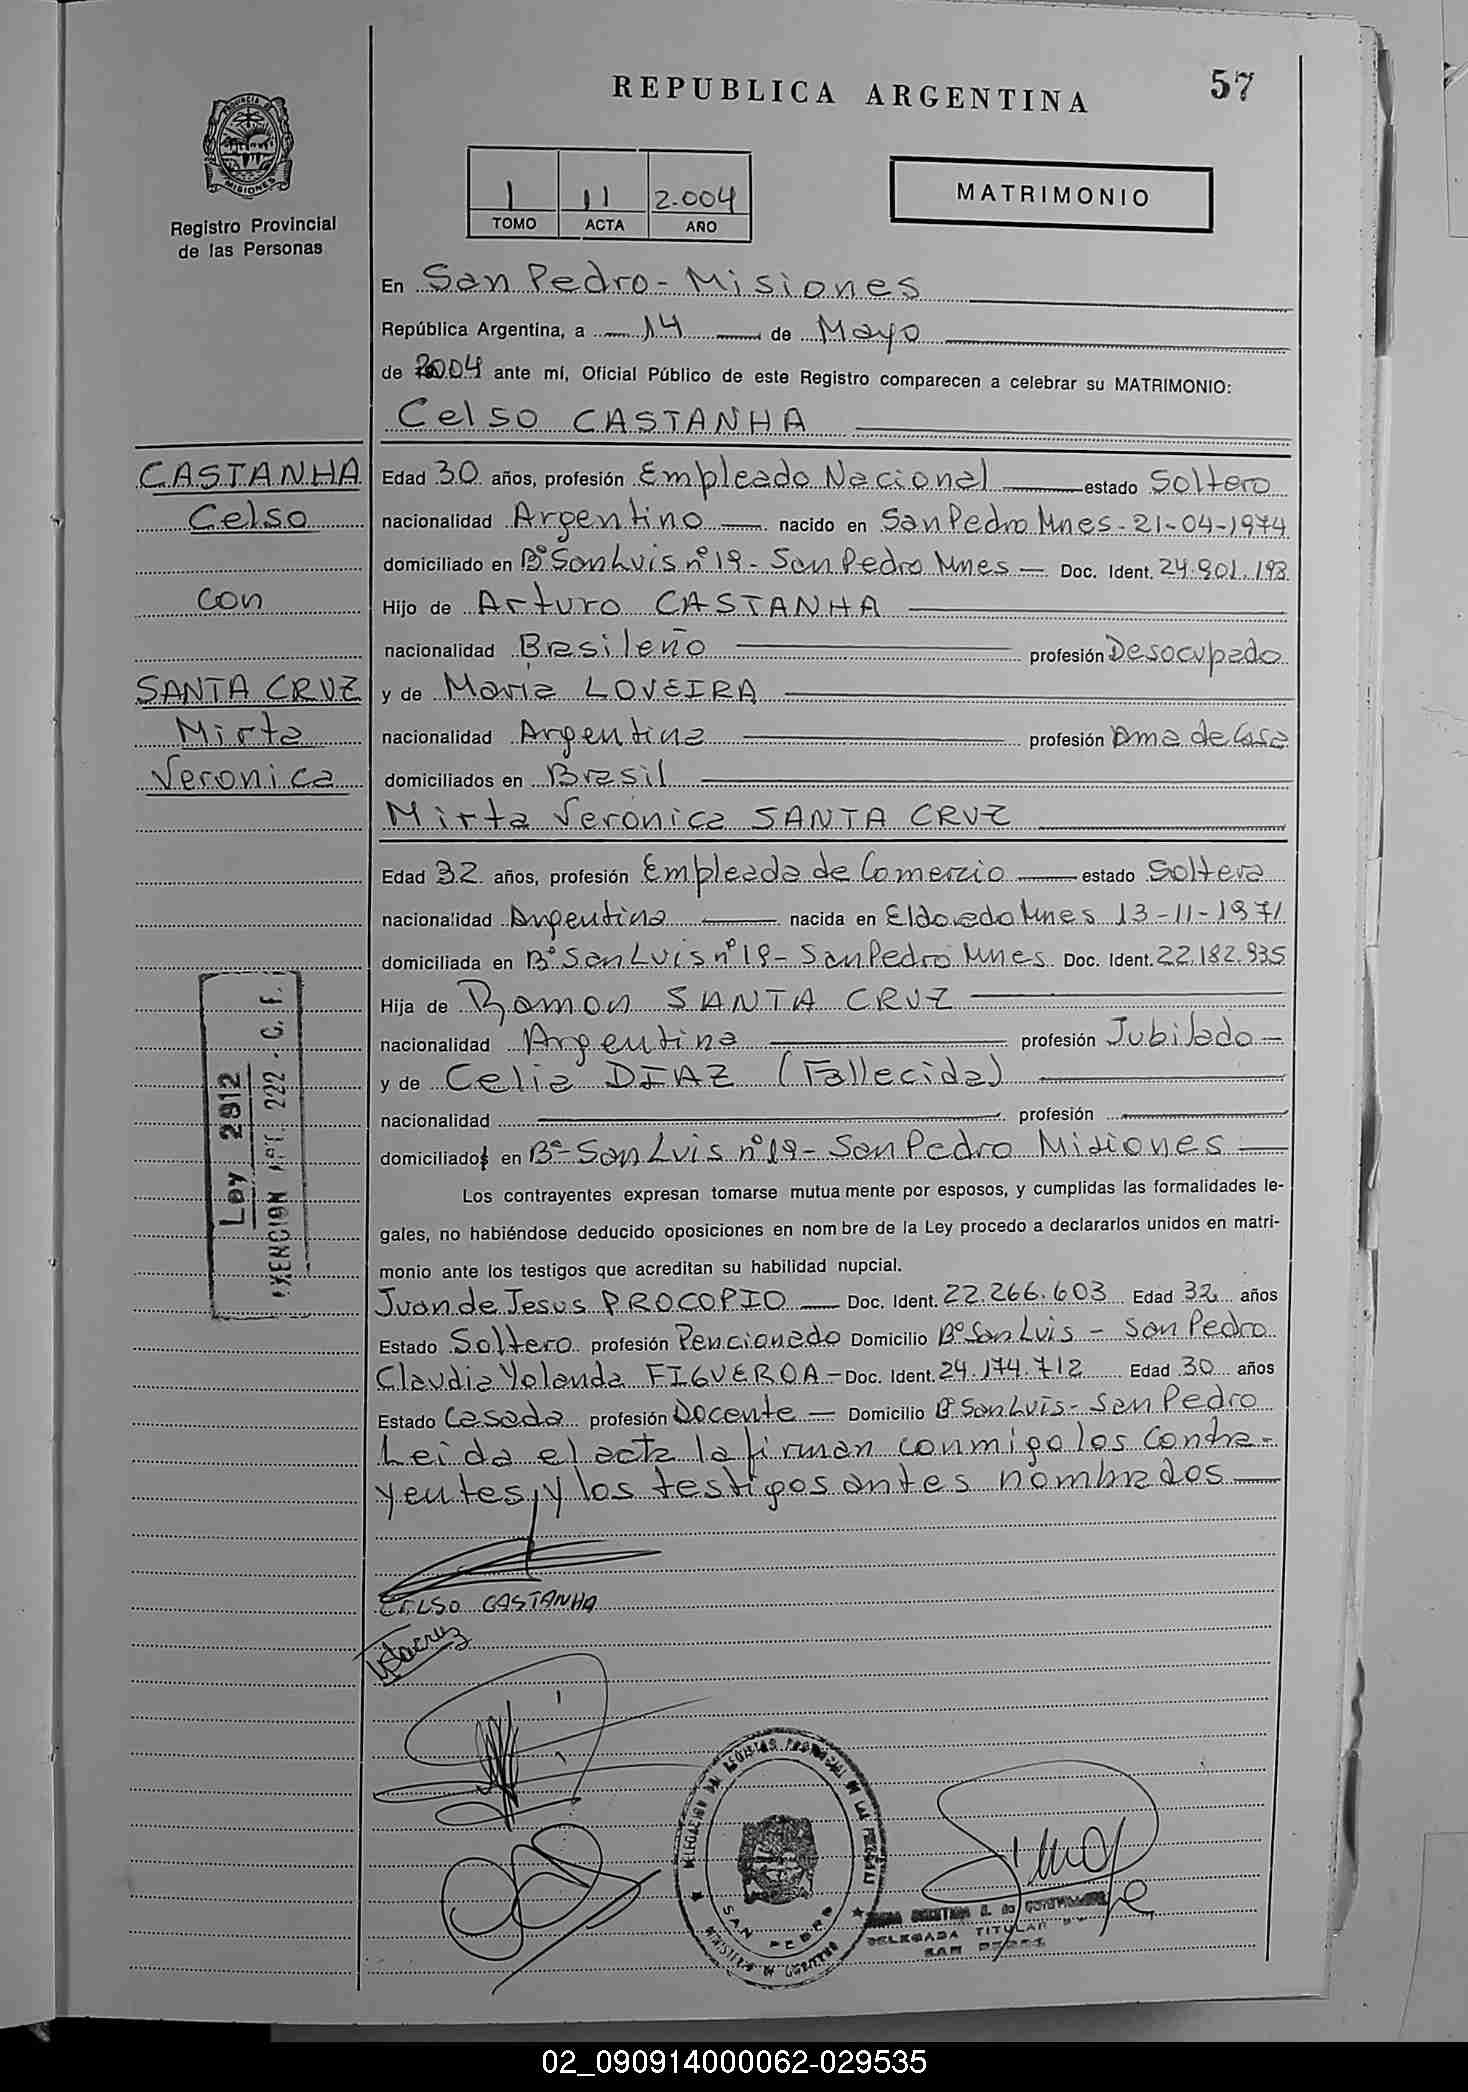 REPUBLICA ARGENTINA
57
PROVINCIA DE
MISIONES
Registro Provincial
de las Personas
1 11 2.004
TOMO ACTA AÑO
MATRIMONIO
En San Pedro - Misiones
República Argentina, a 14 de Mayo
de 2004 ante mí, Oficial Público de este Registro comparecen a celebrar su MATRIMONIO:
Celso CASTANHA
CASTANHA
Celso
con
SANTA CRUZ
Mirta
Veronica
Edad 30 años, profesión Empleado Nacional estado Soltero
nacionalidad Argentino nacido en San Pedro Mnes - 21-04-1974
domiciliado en Bº San Luis nº 19 - San Pedro Mnes - Doc. Ident. 24.901.193
Hijo de Arturo CASTANHA
nacionalidad Brasileño profesión Desocupado
y de Maria LOVEIRA
nacionalidad Argentina profesión Ama de Casa
domiciliados en Brasil
Mirta Verónica SANTA CRUZ
Edad 32 años, profesión Empleada de Comercio estado Soltera
nacionalidad Argentina nacida en Eldorado Mnes 13-11-1971
domiciliada en Bº San Luis nº 19 - San Pedro Mnes. Doc. Ident. 22.182.935
Hija de Ramon SANTA CRUZ
nacionalidad Argentina profesión Jubilado
y de Celia DIAZ (Fallecida)
nacionalidad profesión
domiciliados en Bº San Luis nº 19 - San Pedro Misiones
Los contrayentes expresan tomarse mutuamente por esposos, y cumplidas las formalidades le-
gales, no habiéndose deducido oposiciones en nombre de la Ley procedo a declararlos unidos en matri-
monio ante los testigos que acreditan su habilidad nupcial.
Juan de Jesus PROCOPIO Doc. Ident. 22.266.603 Edad 32 años
Estado Soltero profesión Pencionado Domicilio Bº San Luis - San Pedro
Claudia Yolanda FIGUEROA - Doc. Ident. 24.174.712 Edad 30 años
Estado Casada profesión Docente - Domicilio Bº San Luis - San Pedro
Leida el acta la firman conmigo los contra-
yentes, y los testigos antes nombrados
Ley 2912
EXENCION ART. 222 - C. F.
CELSO CASTANHA
DELEGACION DEL REGISTRO PROVINCIAL DE LAS PERSONAS
SAN PEDRO
MINISTERIO DE GOBIERNO
DELEGADA TITULAR
SAN PEDRO
02_090914000062-029535